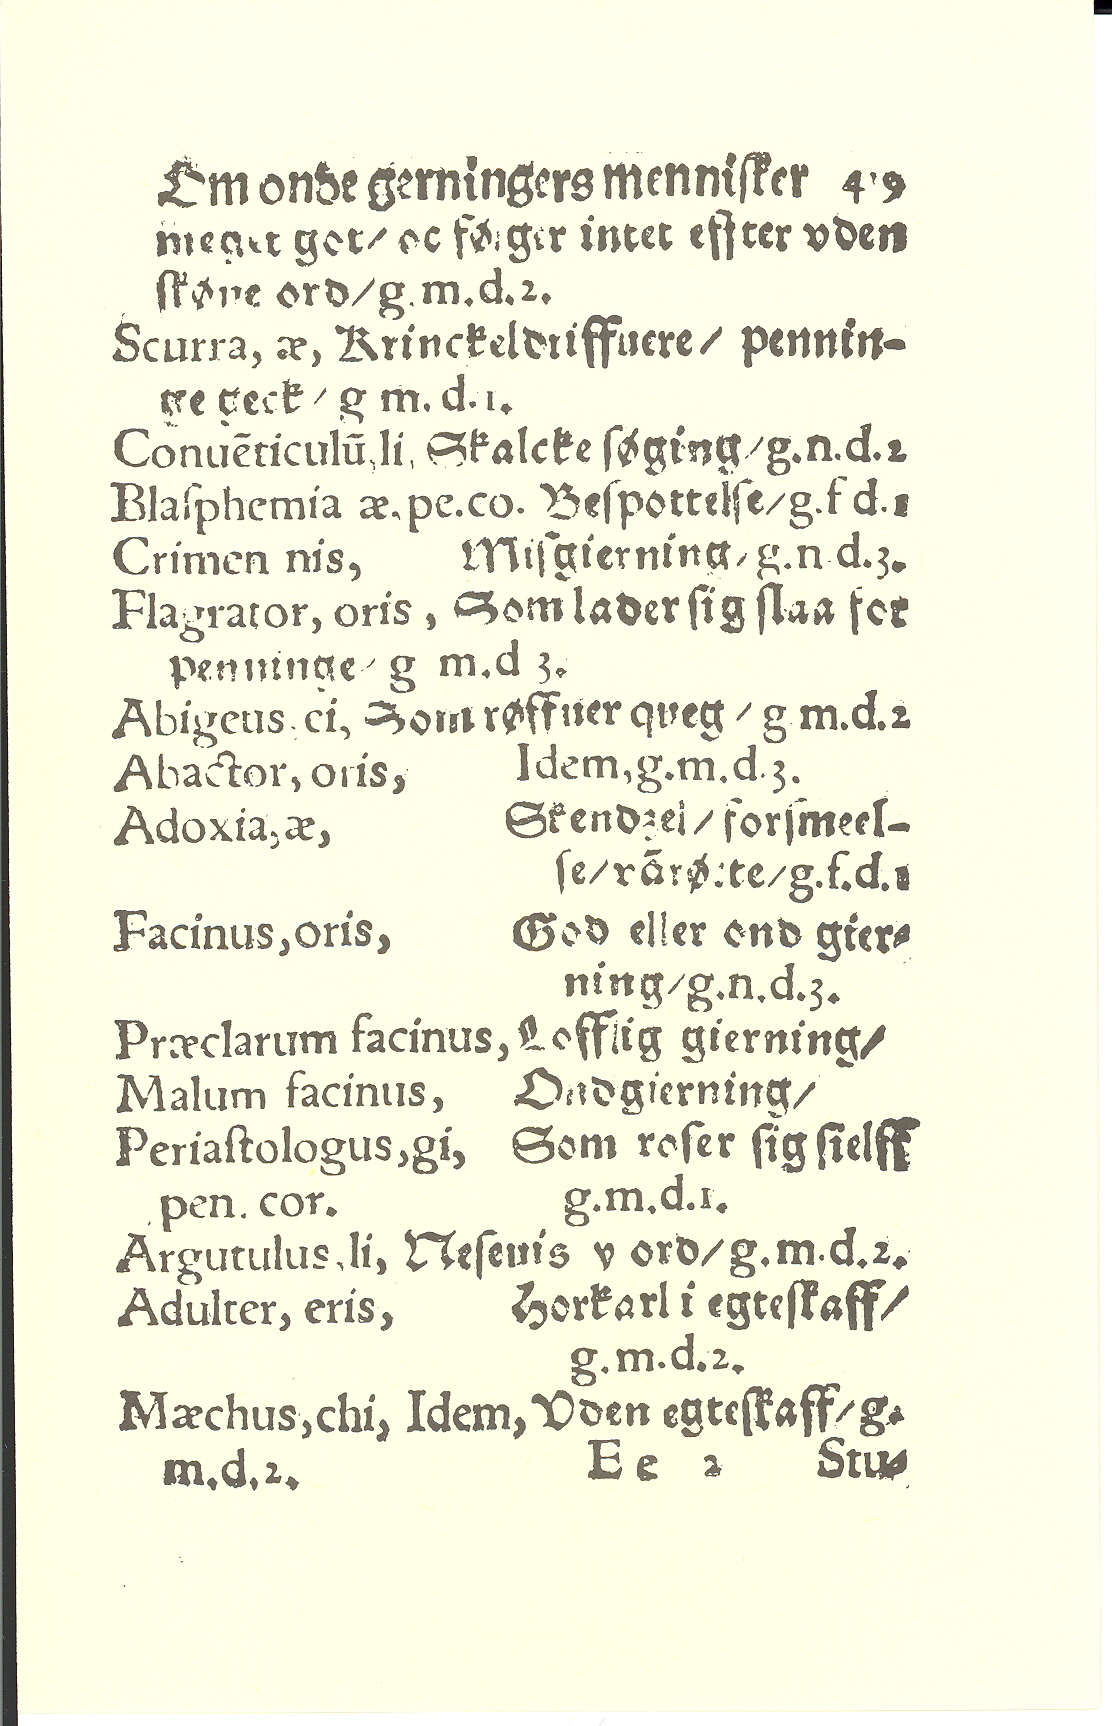 Om onde gerningers mennisker 419
meget got/ oc følger intet effter vden
skøne ord/g.m.d.2.
Scurra, æ, Krinckeldriffuere/ pennin-
ge geck/ g m. d.1.
Conuẽticulũ,li, Skalcke søging/g.n.d.2
Blasphemia æ.pe.co. Bespottelse/g.f d.1
Crimen nis, Misgierning/g.n d.3.
Flagrator, oris, Som lader sig slaa for
penninge/ g m.d 3.
Abigeus.ci, Som røffuer queg/ g m.d.2
Abactor, oris, Idem,g.m.d.3.
Adoxia,æ, Skendzel/ forsmeel-
se/ g.f.d.1
Facinus,oris, God eller ond gier-
ning/g.n.d.3.
Præclarum facinus, Lofflig gierning/
Malum facinus, Ondgierning/
Periastologus,gi, Som roser sig sielff
pen. cor. g.m.d.1.
Argutulus,li, Neseuis v ord/g.m.d.2.
Adulter, eris, Horkarl i egteskaff/
g.m.d.2.
Mæchus,chi, Idem, Vden egteskaff/g.
m.d.2. Ee 2 Stu-